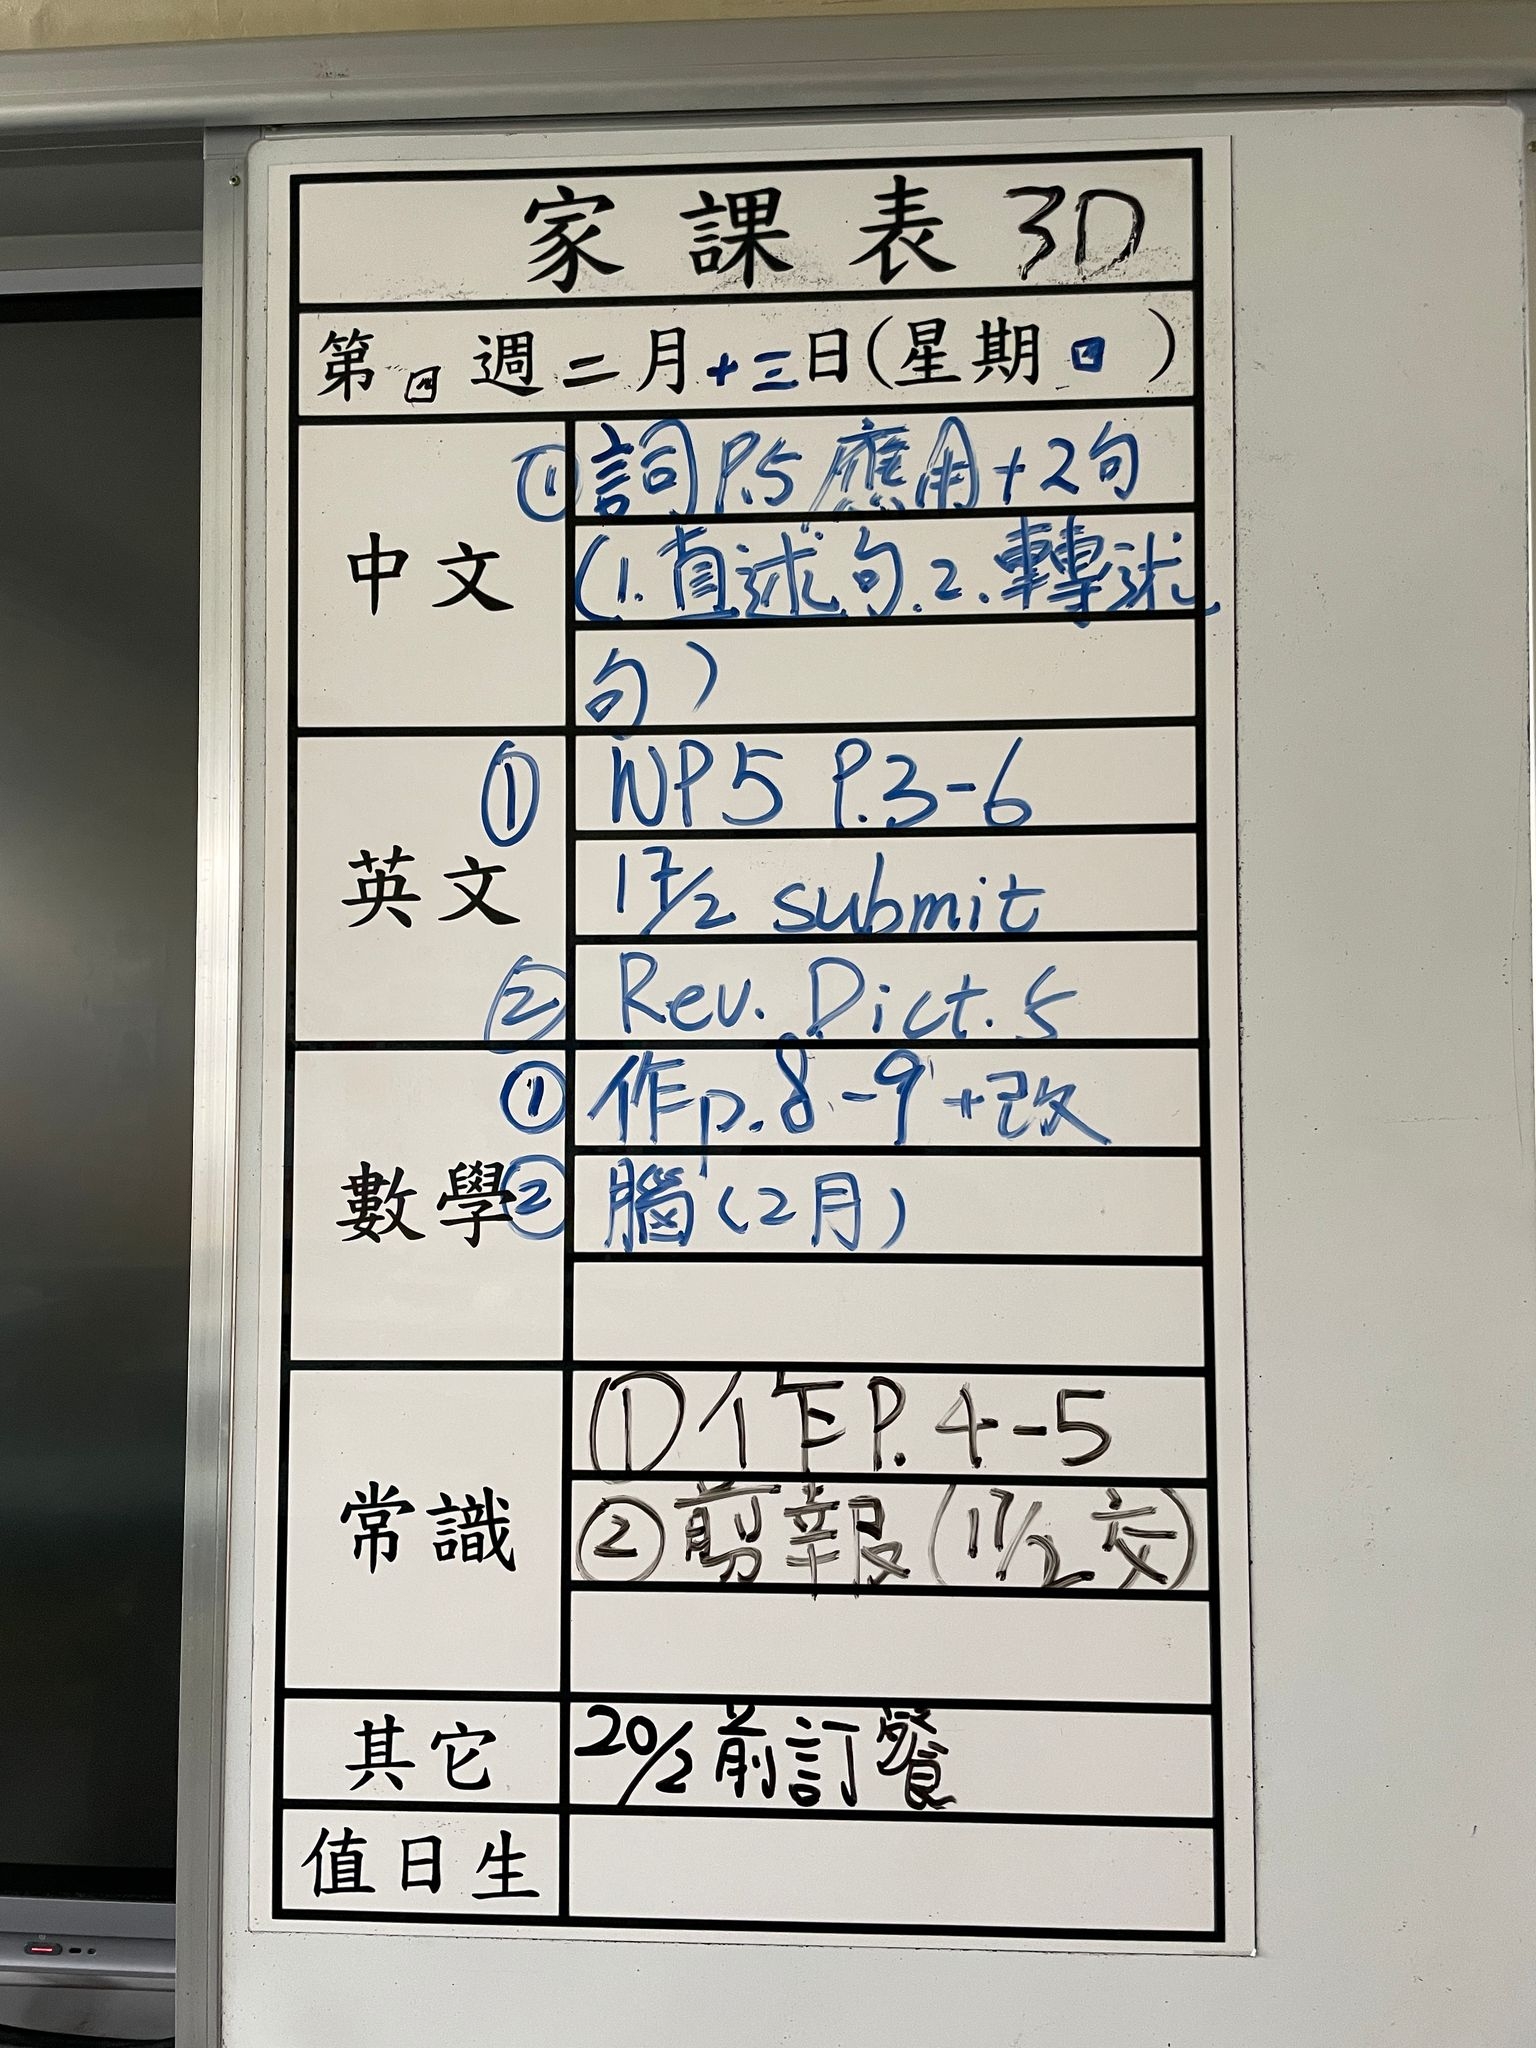 家課表 3D
第四週二月十三日(星期四)
中文
① 詞P.5應用+2句
(1.直述句.2.轉述
句)
英文
① NP5 P.3-6
17/2 submit
② Rev. Dict. 5
數學
① 作p.8-9+改
② 腦(2月)
常識
①作P.4-5
②剪報(17/2交)
其它
20/2前訂餐
值日生